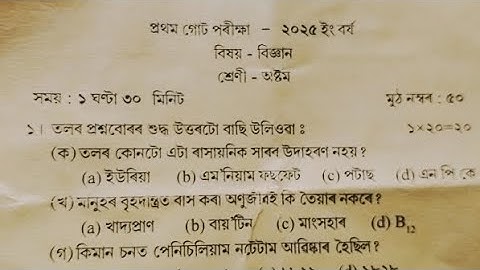 প্ৰথম গোট পৰীক্ষা - ২০২৫ ইং বৰ্ষ
বিষয় - বিজ্ঞান
শ্ৰেণী - অষ্টম
সময় : ১ ঘণ্টা ৩০ মিনিট মুঠ নম্বৰ : ৫০
১। তলৰ প্ৰশ্নবোৰৰ শুদ্ধ উত্তৰটো বাছি উলিওৱা : ১×২০=২০
(ক) তলৰ কোনটো এটা ৰাসায়নিক সাৰৰ উদাহৰণ নহয় ?
(a) ইউৰিয়া (b) এম'নিয়াম ফছফেট (c) পটাছ (d) এন পি কে
(খ) মানুহৰ বৃহদান্ত্ৰত বাস কৰা অণুজীৱই কি তৈয়াৰ নকৰে ?
(a) খাদ্যপ্ৰাণ (b) বায়'টিন (c) মাংসহাৰ (d) B₁₂
(গ) কিমান চনত পেনিচিলিয়াম নটেটাম আৱিষ্কাৰ হৈছিল ?